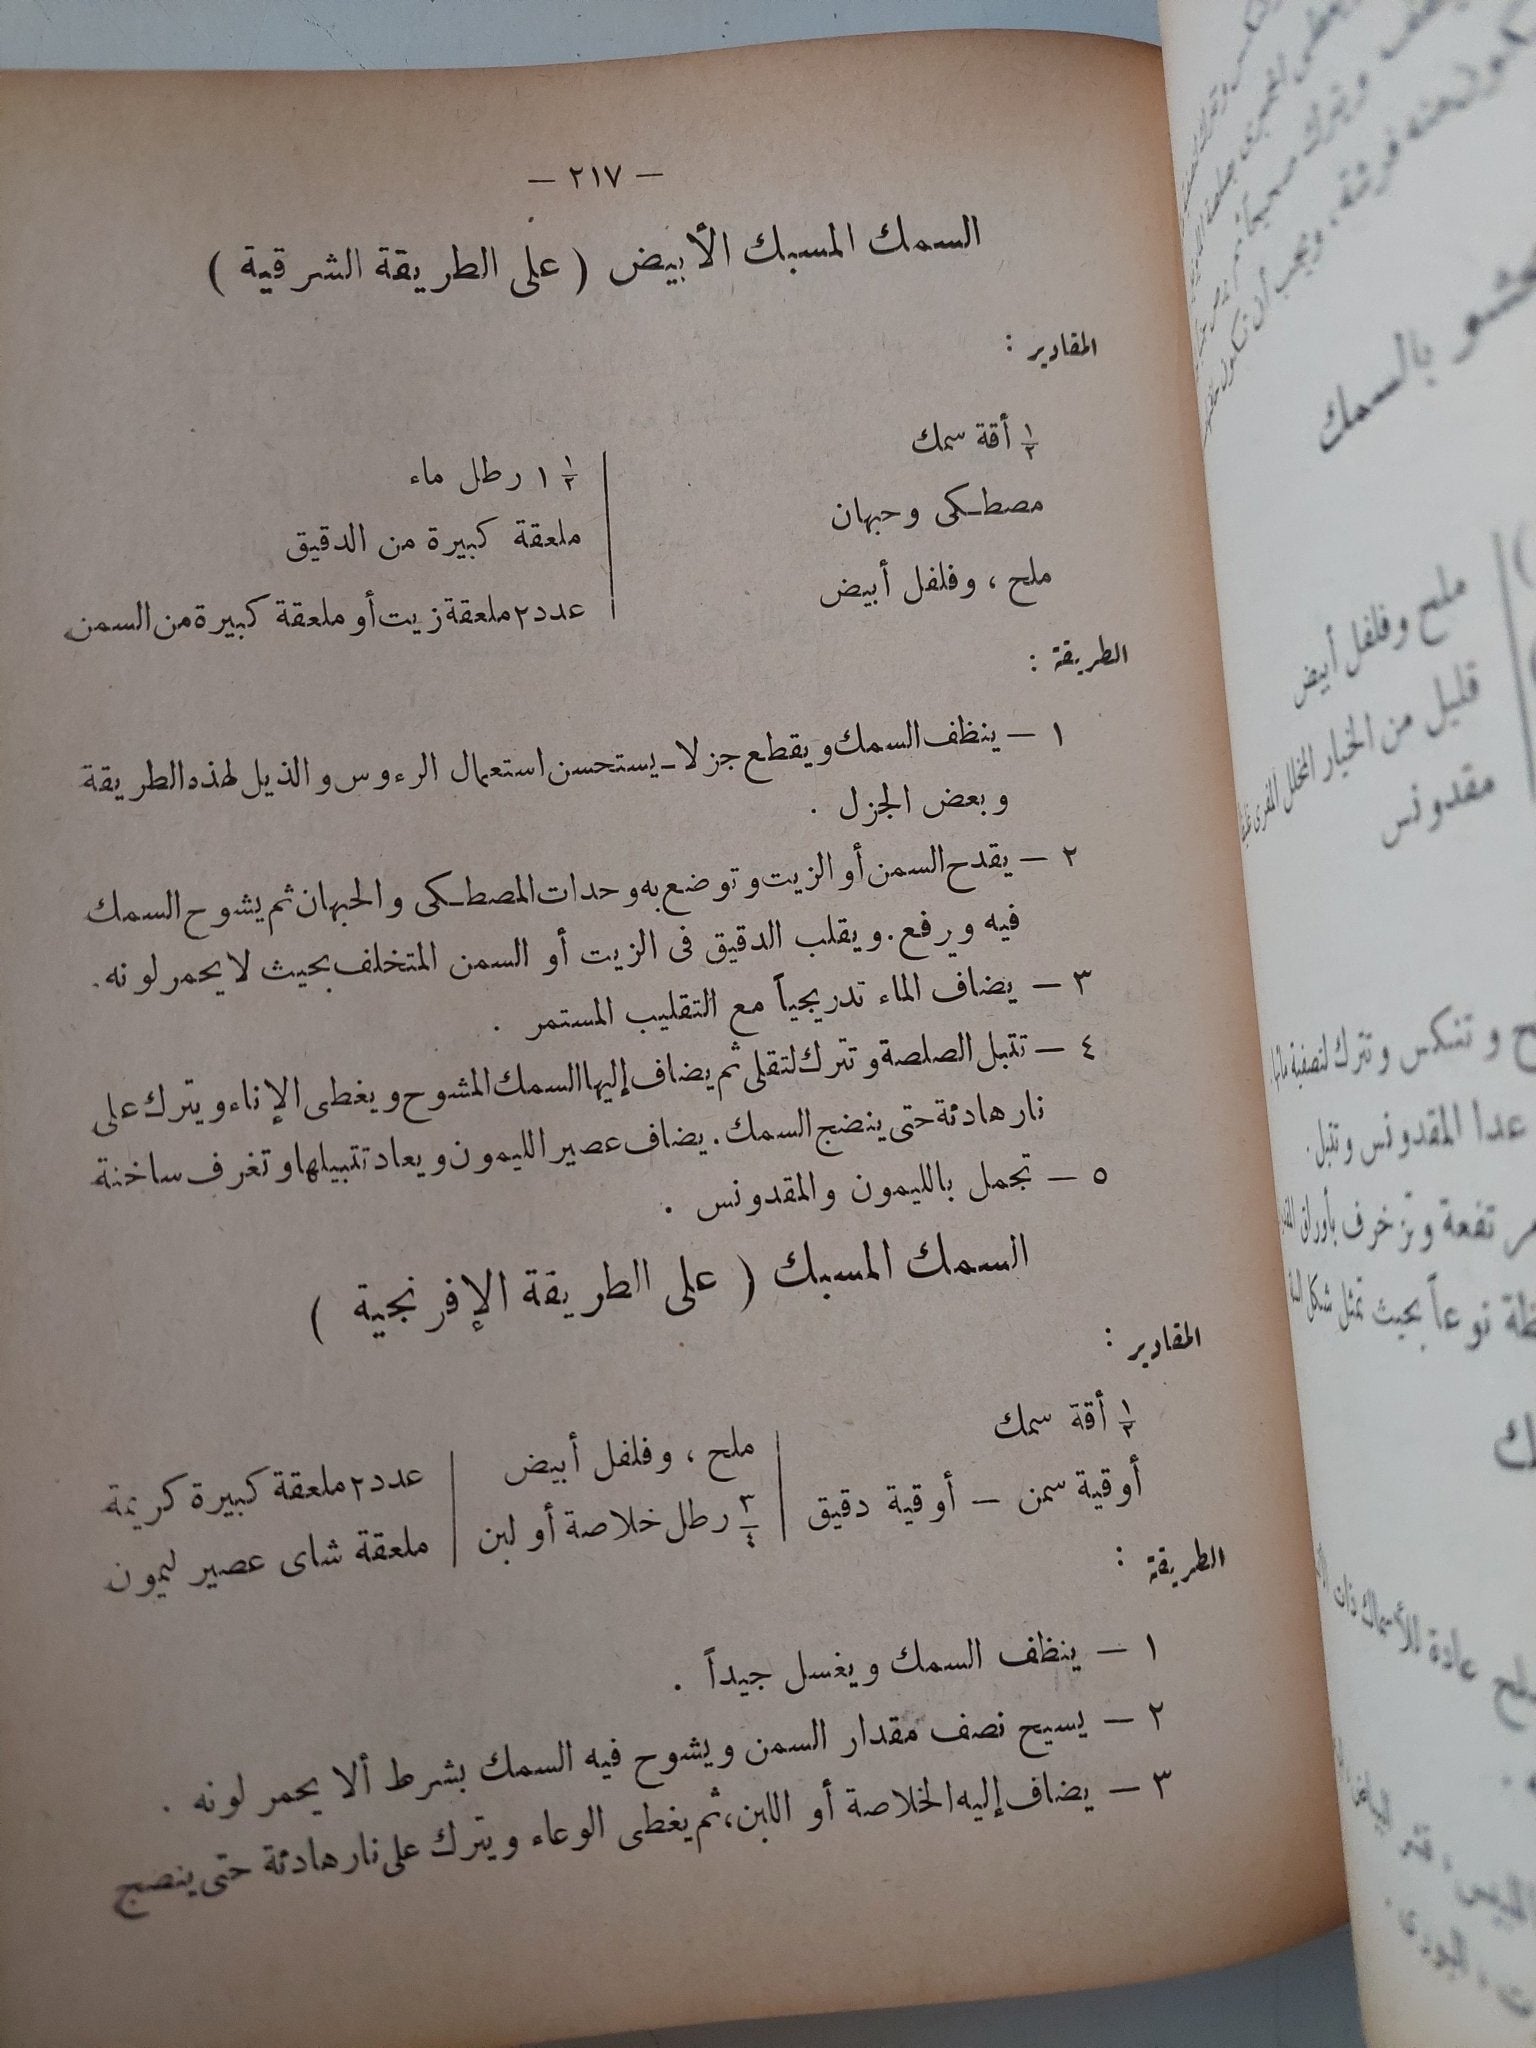 — ٢١٧ —
السمك المسبك الأبيض ( على الطريقة الشرقية )
المقادير :
½ أقة سمك
مصطكى وحبهان
ملح ، وفلفل أبيض
١ ½ رطل ماء
ملعقة كبيرة من الدقيق
عدد ٢ ملعقة زيت أو ملعقة كبيرة من السمن
الطريقة :
١ — ينظف السمك ويقطع جزلا ـ يستحسن استعمال الرءوس والذيل لهذه الطريقة
وبعض الجزل .
٢ — يقدح السمن أو الزيت وتوضع به وحدات المصطكى والحبهان ثم يشوح السمك
فيه ويرفع . ويقلب الدقيق فى الزيت أو السمن المتخلف بحيث لا يحمر لونه .
٣ — يضاف الماء تدريجياً مع التقليب المستمر .
٤ — تتبل الصلصة وتترك لتقلى ثم يضاف إليها السمك المشوح ويغطى الإناء ويترك على
نار هادئة حتى ينضج السمك . يضاف عصير الليمون ويعاد تتبيلها وتغرف ساخنة
٥ — تجمل بالليمون والمقدونس .
السمك المسبك ( على الطريقة الإفرنجية )
المقادير :
½ أقة سمك
أوقية سمن — أوقية دقيق
ملح ، وفلفل أبيض
¾ رطل خلاصة أو لبن
عدد ٢ ملعقة كبيرة كريمة
ملعقة شاى عصير ليمون
الطريقة :
١ — ينظف السمك ويغسل جيداً .
٢ — يسيح نصف مقدار السمن ويشوح فيه السمك بشرط ألا يحمر لونه .
٣ — يضاف إليه الخلاصة أو اللبن ، ثم يغطى الوعاء ويترك على نار هادئة حتى ينضج
بالسمك
ملح وفلفل أبيض
قليل من الخيار المخلل المفرى
مقدونس
وتنكس وتترك لتصفية مائها .
عدا المقدونس وتتبل .
وتزخرف بأوراق
نوعاً بحيث تمثل شكل
عادة للأسماك ذات